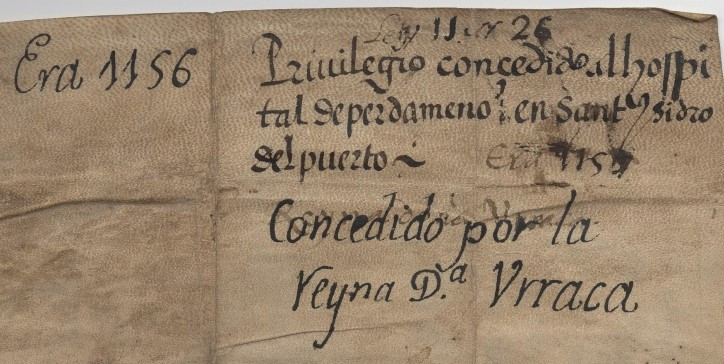 Leg 11 nr 26
Era 1156
Priuilegio concedido al hospi
tal de perdameno en Santy Sidro
del puerto Era 115
Concedido por la
reyna D.ª Vrraca